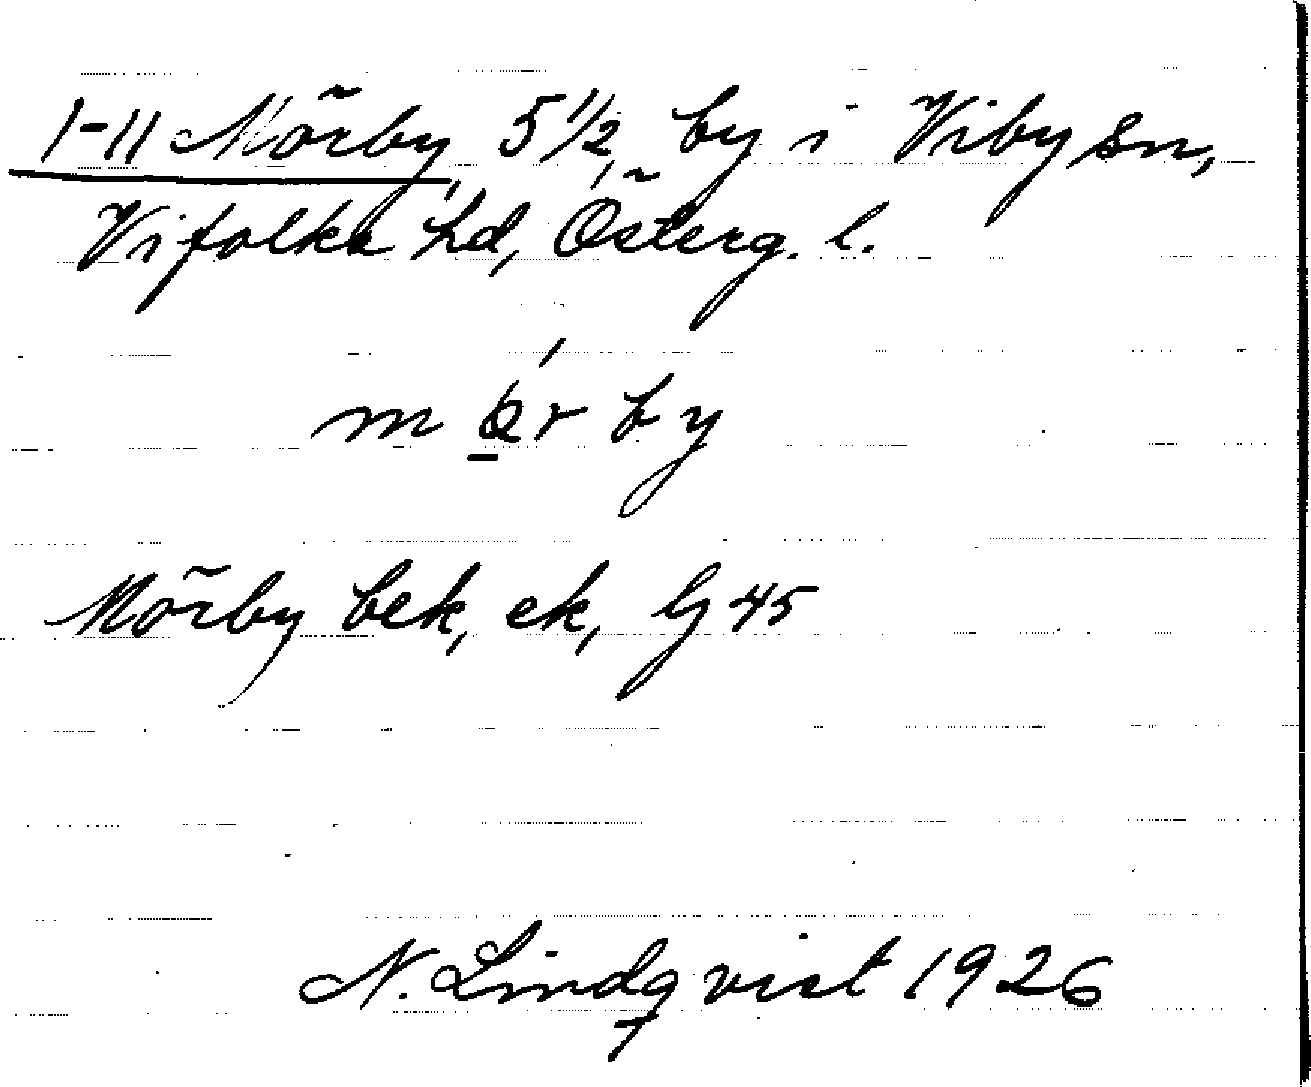 1-11 Mörby, 5 1/2, by i Viby sn,
Vifolka hd, Österg. l.
by
Mörby bek, ek, lg 45
N. Lindqvist 1926